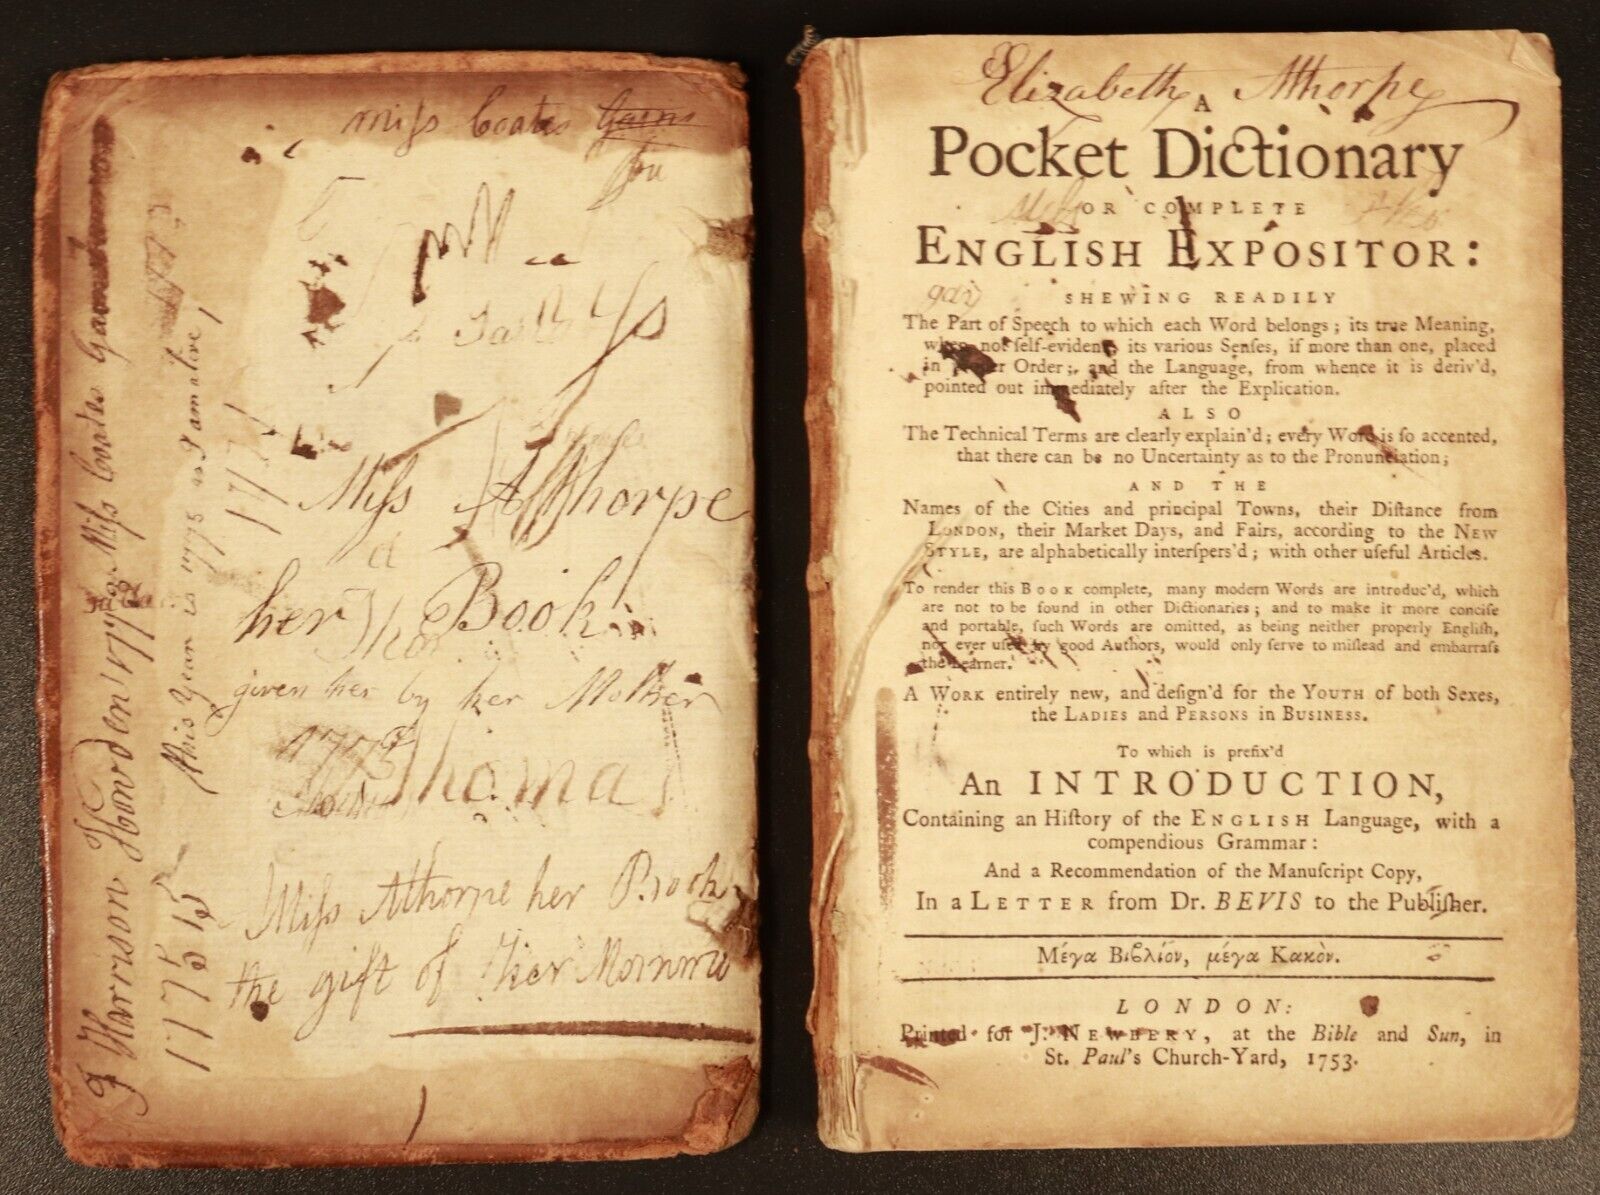 miſs Coates
you
Miſs Althorpe
her Book
given her by her Mother
1773
Thomas
Miſs Althorpe her Book
the gift of her Momma
Miſs Coates
this Year is 1775 as I am alive
Harrison Howden
1775
Elizabeth Althorpe
A
Pocket Dictionary
OR COMPLETE
ENGLISH EXPOSITOR:
SHEWING READILY
The Part of Speech to which each Word belongs; its true Meaning,
when not ſelf-evident, its various Senſes, if more than one, placed
in Order; and the Language, from whence it is deriv'd,
pointed out immediately after the Explication.
ALSO
The Technical Terms are clearly explain'd; every Word is ſo accented,
that there can be no Uncertainty as to the Pronunciation;
AND THE
Names of the Cities and principal Towns, their Diſtance from
LONDON, their Market Days, and Fairs, according to the NEW
STYLE, are alphabetically interſpers'd; with other uſeful Articles.
To render this BOOK complete, many modern Words are introduc'd, which
are not to be found in other Dictionaries; and to make it more conciſe
and portable, ſuch Words are omitted, as being neither properly Engliſh,
nor ever uſed by good Authors, would only ſerve to miſlead and embarraſs
the Learner.
A WORK entirely new, and deſign'd for the YOUTH of both Sexes,
the LADIES and PERSONS in BUSINESS.
To which is prefix'd
An INTRODUCTION,
Containing an Hiſtory of the ENGLISH Language, with a
compendious Grammar:
And a Recommendation of the Manuſcript Copy,
In a LETTER from Dr. BEVIS to the Publiſher.
Μέγα Βιϐλίον, μέγα Κακὸν.
LONDON:
Printed for J. NEWBERY, at the Bible and Sun, in
St. Paul's Church-Yard, 1753.